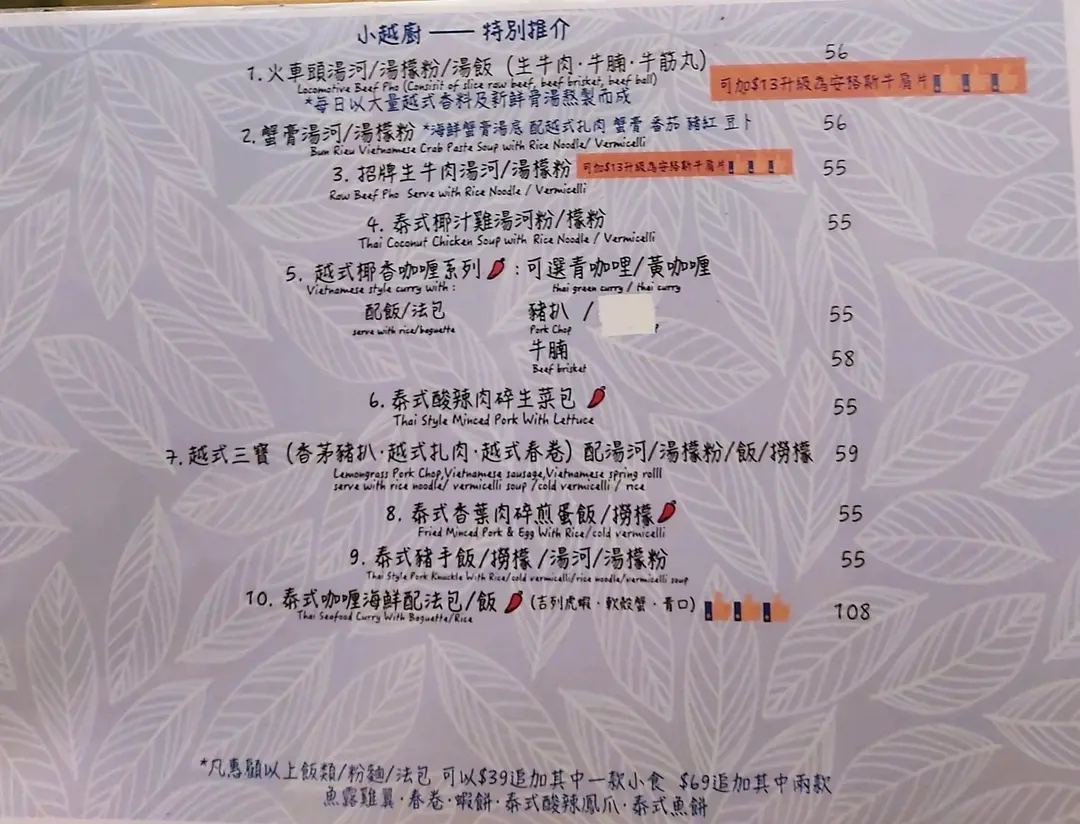 小越廚 —— 特別推介
1. 火車頭湯河/湯檬粉/湯飯 (生牛肉·牛腩·牛筋丸) 56
Locomotive Beef Pho (Consisit of slice raw beef, beef brisket, beef ball)
可加$13升級為安格斯牛肩片
*每日以大量越式香料及新鮮骨湯熬製而成
2. 蟹膏湯河/湯檬粉 *海鮮蟹膏湯底 配越式扎肉 蟹膏 番茄 豬紅 豆卜 56
Bun Rieu Vietnamese Crab Paste Soup with Rice Noodle/ Vermicelli
3. 招牌生牛肉湯河/湯檬粉 可加$13升級為安格斯牛肩片 55
Raw Beef Pho Serve with Rice Noodle / Vermicelli
4. 泰式椰汁雞湯河粉/檬粉 55
Thai Coconut Chicken Soup with Rice Noodle / Vermicelli
5. 越式椰香咖喱系列 : 可選青咖哩/黃咖喱
Vietnamese style curry with : thai green curry / thai curry
配飯/法包 豬扒 / 55
serve with rice/baguette Pork Chop
牛腩 58
Beef brisket
6. 泰式酸辣肉碎生菜包 55
Thai Style Minced Pork With Lettuce
7. 越式三寶 (香茅豬扒·越式扎肉·越式春卷) 配湯河/湯檬粉/飯/撈檬 59
Lemongrass Pork Chop,Vietnamese sausage,Vietnamese spring rolll
serve with rice noodle/ vermicelli soup /cold vermicelli / rice
8. 泰式香葉肉碎煎蛋飯/撈檬 55
Fried Minced Pork & Egg With Rice/cold vermicelli
9. 泰式豬手飯/撈檬/湯河/湯檬粉 55
Thai Style Pork Knuckle With Rice/cold vermicelli/rice noodle/vermicelli soup
10. 泰式咖喱海鮮配法包/飯 (吉列虎蝦·軟殼蟹·青口) 108
Thai Seafood Curry With Baguette/Rice
*凡惠顧以上飯類/粉麵/法包 可以$39追加其中一款小食 $69追加其中兩款
魚露雞翼·春卷·蝦餅·泰式酸辣鳳爪·泰式魚餅